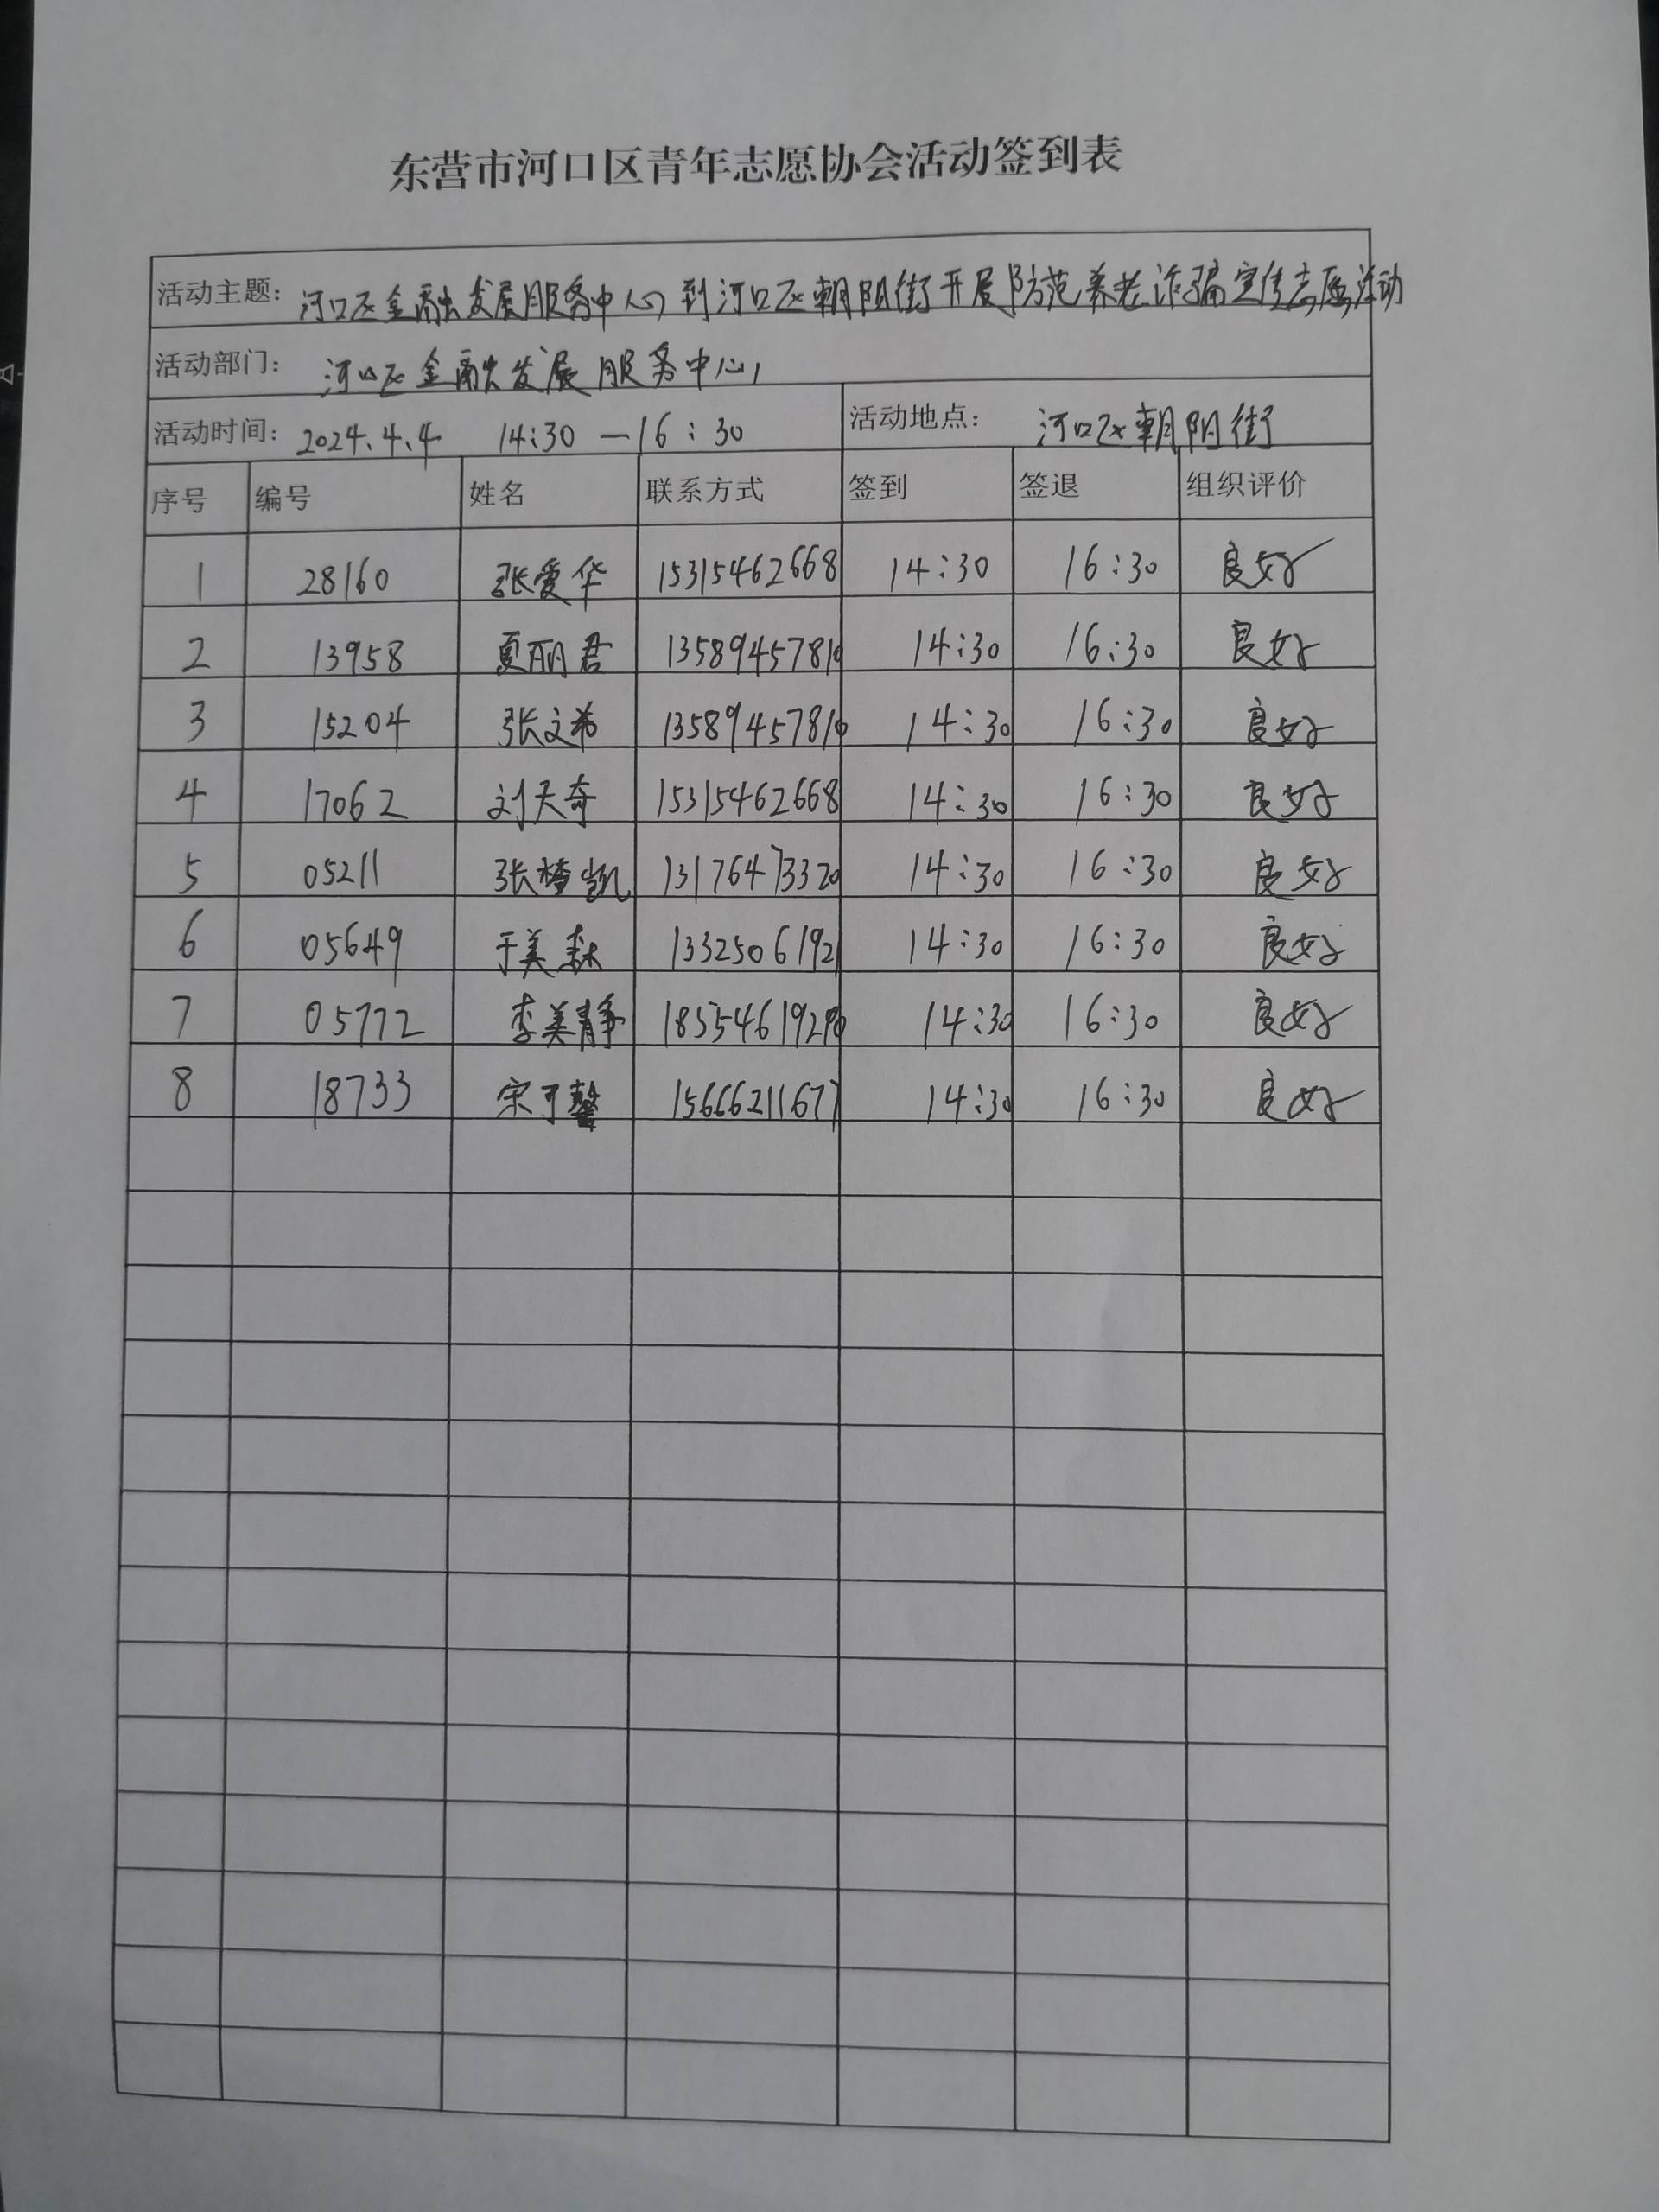 东营市河口区青年志愿协会活动签到表
活动主题: 河口区金融发展服务中心到河口区朝阳街开展防范养老诈骗宣传志愿活动
活动部门: 河口区金融发展服务中心
活动时间: 2024.4.4 14:30—16:30 活动地点: 河口区朝阳街
序号 编号 姓名 联系方式 签到 签退 组织评价
1 28160 张爱华 15315462668 14:30 16:30 良好
2 13958 夏丽君 13589457810 14:30 16:30 良好
3 15204 张文希 13589457810 14:30 16:30 良好
4 17062 刘天奇 15315462668 14:30 16:30 良好
5 05211 张梦凯 13176473320 14:30 16:30 良好
6 05649 于美 13325061921 14:30 16:30 良好
7 05772 李美静 14:30 16:30 良好
8 18733 宋可馨 15666211677 14:30 16:30 良好